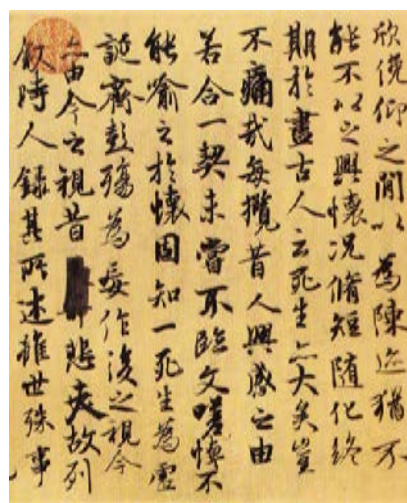 欣俛仰之閒以為陳迹猶不
能不以之興懷況脩短隨化終
期於盡古人云死生亦大矣豈
不痛哉每攬昔人興感之由
若合一契未嘗不臨文嗟悼不
能喻之於懷固知一死生為虛
誕齊彭殤為妄作後之視今
亦由今之視昔悲夫故列
叙時人錄其所述雖世殊事